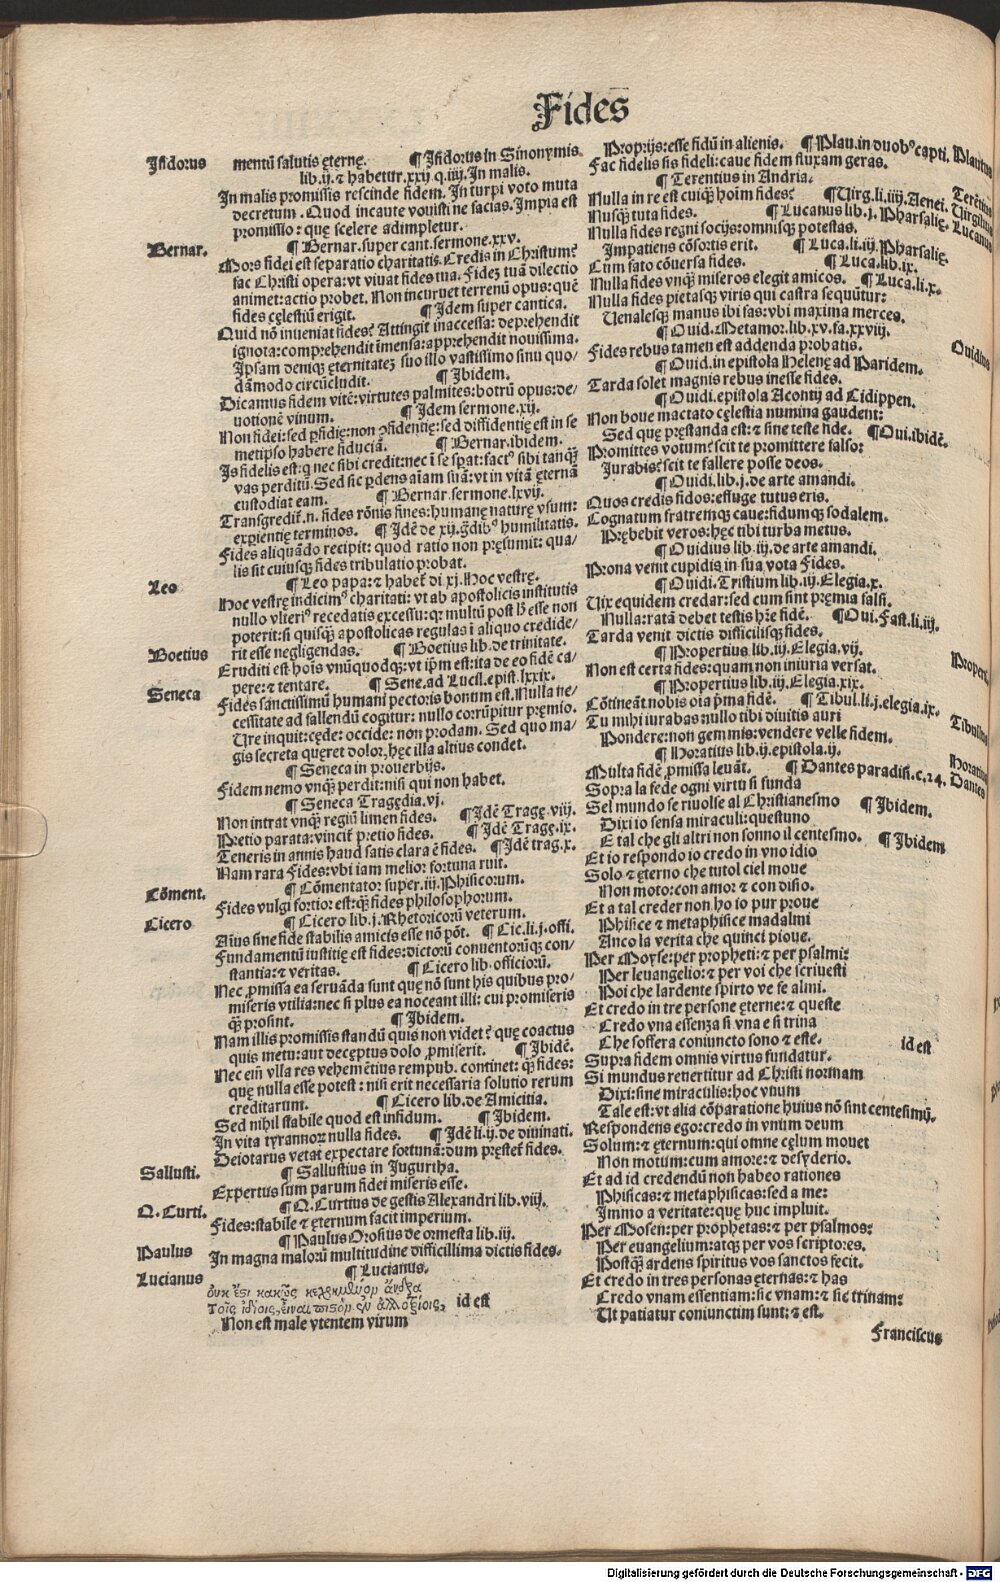 Fides
Isidorus
mentū salutis ęternę. ¶ Isidorus in Sinonymis
lib.ij. & habetur.xxij q.iiij. In malis.
In malis promissis rescinde fidem. In turpi voto muta
decretum. Quod incaute vouisti ne facias. Impia est
promissio: quę scelere adimpletur.
Bernar.
¶ Bernar. super cant. sermone.xxv.
Mors fidei est separatio charitatis. Credis in Christum?
fac Christi opera: vt viuat fides tua. Fidez tuā dilectio
animet: actio probet. Non incuruet terrenū opus: quē
fides cęlestiū erigit. ¶ Idem super cantica.
Quid nō inueniat fides? Attingit inaccessa: deprehendit
ignota: comprehendit īmensa: apprehendit nouissima.
Ipsam deniqʒ ęternitatez suo illo vastissimo sinu quo/
dāmodo circūcludit. ¶ Ibidem.
Dicamus fidem vitē: virtutes palmites: botrū opus: de/
uotionē vinum. ¶ Idem sermone.xij.
Non fidei: sed ꝑfidię: non ꝯfidentię: sed diffidentię est in se
metipso habere fiduciā. ¶ Bernar. ibidem.
Is fidelis est: q nec sibi credit: nec ī se sperat: factꝰ sibi tanqʒ̄
vas perditū. Sed sic ꝑdens aīam suā: vt in vitā ęternā
custodiat eam. ¶ Bernar. sermone.lxvij.
Transgredit̄.n. fides rōnis fines: humanę naturę vsum:
experientię terminos. ¶ Idē de xij. gdibꝰ humilitatis.
Fides aliquādo recipit: quod ratio non pręsumit: qua/
lis sit cuiusqʒ fides tribulatio probat.
Leo
¶ Leo papa: & habet̄ di xj. Hoc vestrę.
Hoc vestrę indicimꝰ charitati: vt ab apostolicis institutis
nullo vlteriꝰ recedatis excessu: qr multū post lʒ esse non
poterit: si quisqʒ apostolicas regulas ī aliquo credide/
rit esse negligendas. ¶ Boetius lib. de trinitate.
Boetius
Eruditi est hoīs vnūquodqʒ: vt ipm est: ita de eo fidē ca/
pere: & tentare. ¶ Sene. ad Lucil. epist.lxxix.
Seneca
Fides sanctissimū humani pectoris bonum est. Nulla ne/
cessitate ad fallendū cogitur: nullo corrūpitur pręmio.
Vre inquit: cęde: occide: non prodam. Sed quo ma/
gis secreta quęret dolor, hęc illa altius condet.
¶ Seneca in prouerbijs.
Fidem nemo vnqʒ̄ perdit: nisi qui non habet.
¶ Seneca Tragędia.vj.
Non intrat vnqʒ̄ regiū limen fides. ¶ Idē Tragę.viij.
Pretio parata: vincit̄ pretio fides. ¶ Idē Tragę.ix.
Teneris in annis haud satis clara ē fides. ¶ Idē trag.x.
Nam rara fides: vbi iam melior fortuna ruit.
Cōment.
¶ Cōmentator super.iij. Phisicorum.
Fides vulgi fortior est: qʒ̄ fides philosophorum.
Cicero
¶ Cicero lib.j. Rhetoricorū veterum.
Aīus sine fide stabilis amicis esse nō pōt. ¶ Cic.li.j.offi.
Fundamentū iustitię est fides: dictorū conuentorūqʒ con/
stantia: & veritas. ¶ Cicero lib. officiorū.
Nec ꝓmissa ea seruāda sunt quę nō sunt his quibus pro/
miseris vtilia: nec si plus ea noceant illi: cui promiseris
qʒ̄ prosint. ¶ Ibidem.
Nam illis promissis standū quis non videt? quę coactus
quis metu: aut deceptus dolo ꝓmiserit. ¶ Ibidē.
Nec eīm vlla res vehemētius rempub. continet: qʒ̄ fides:
quę nulla esse potest: nisi erit necessaria solutio rerum
creditarum. ¶ Cicero lib. de Amicitia.
Sed nihil stabile quod est infidum. ¶ Ibidem.
In vita tyrannoꝝ nulla fides. ¶ Idē li.ij. de diuinati.
Deiotarus vetat expectare fortunā: dum pręstet̄ fides.
Sallusti.
¶ Sallustius in Iugurtha.
Expertus sum parum fidei miseris esse.
Q. Curti.
¶ Q. Curtius de gestis Alexandri lib.viij.
Fides: stabile & ęternum facit imperium.
Paulus
¶ Paulus Orosius de ormesta lib.iij.
In magna malorū multitudine difficillima dictis fides.
Lucianus
¶ Lucianus.
ὀυκ ἔςι κακῶς κεχρημθύομ ἄνδρα
Τοῖς ἰδίοις, εἶναι πισὸμ ἐν ἀλλοτρίοις, id est
Non est male vtentem virum
Proprijs: esse fidū in alienis. ¶ Plau. in duobꝰ capti.
Plautus
Fac fidelis sis fideli: caue fidem fluxam geras.
¶ Terentius in Andria.
Terētius
Nulla in re est cuiqʒ hoīm fides? ¶ Virg.li.iiij. Aenei.
Virgilius
Nusqʒ̄ tuta fides. ¶ Lucanus lib.j. Pharsalię.
Lucanus
Nulla fides regni socijs: omnisqʒ potestas.
Impatiens cōsortis erit. ¶ Luca.li.iij. Pharsalię.
Cum fato cōuersa fides. ¶ Luca.lib.ix.
Nulla fides vnqʒ̄ miseros elegit amicos. ¶ Luca.li.x.
Nulla fides pietasqʒ viris qui castra sequūtur:
Venalesqʒ manus ibi fas: vbi maxima merces.
¶ Ouid. Metamor.lib.xv.fa.xxviij.
Fides rebus tamen est addenda probatis.
Ouidius
¶ Ouid. in epistola Helenę ad Paridem.
Tarda solet magnis rebus inesse fides.
¶ Ouidi. epistola Acontij ad Cidippen.
Non boue mactato cęlestia numina gaudent:
Sed quę pręstanda est: & sine teste fide. ¶ Oui. ibidē.
Promittes votum? scit te promittere falso:
Iurabis? scit te fallere posse deos.
¶ Ouidi. lib.j. de arte amandi.
Quos credis fidos: effuge tutus eris.
Cognatum fratremqʒ caue: fidumqʒ sodalem.
Prębebit veros: hęc tibi turba metus.
¶ Ouidius lib.iij. de arte amandi.
Prona venit cupidis in sua vota Fides.
¶ Ouidi. Tristium lib.iij. Elegia.x.
Vix equidem credar: sed cum sint pręmia falsi.
Nulla: ratā debet testis hr̄e fidē. ¶ Oui. Fast.li.iij.
Tarda venit dictis difficilisqʒ fides.
¶ Propertius lib.ij. Elegia.vij.
Propert.
Non est certa fides: quam non iniuria versat.
¶ Propertius lib.iij. Elegia.xix.
Cōtineāt nobis oīa pma fidē. ¶ Tibul.li.j. elegia.ix.
Tibullus
Tu mihi iurabas nullo tibi diuitis auri
Pondere: non gemmis: vendere velle fidem.
¶ Horatius lib.ij. epistola.ij.
Horatius
Multa fidē ꝓmissa leuāt. ¶ Dantes paradisi.c.24.
Dantes
Sopra la fede ogni virtu si funda
Sel mundo se riuolse al Christianesmo ¶ Ibidem.
Dixi io sensa miraculi: questuno
E tal che gli altri non sonno il centesmo. ¶ Ibidem
Et io respondo io credo in vno idio
Solo & ęterno che tutol ciel moue
Non moto: con amor & con disio.
Et a tal creder non ho io pur proue
Phisice & metaphisice madalmi
Anco la verita che quinci pioue.
Per Moyse: per propheti: & per psalmi:
Per leuangelio: & per voi che scriuesti
Poi che lardente spirto ve fe almi.
Et credo in tre persone ęterne: & queste
Credo vna essenza si vna e si trina
Che soffera coniuncto sono & este. id est
Supra fidem omnis virtus fundatur.
Si mundus reuertitur ad Christi normam
Dixi: sine miraculis: hoc vnum
Tale est: vt alia cōparatione huius nō sint centesimū.
Respondens ego: credo in vnum deum
Solum: & ęternum: qui omne cęlum mouet
Non motum: cum amore: & desyderio.
Et ad id credendū non habeo rationes
Phisicas: & metaphisicas: sed a me:
Immo a veritate: que huc impluit.
Per Mosen: per prophetas: & per psalmos:
Per euangelium: atqʒ per vos scriptores.
Postqʒ̄ ardens spiritus vos sanctos fecit.
Et credo in tres personas ęternas: & has
Credo vnam essentiam: sic vnam: & sic trinam:
Vt patiatur coniunctim sunt: & est.
Franciscus
Digitalisierung gefördert durch die Deutsche Forschungsgemeinschaft - DFG